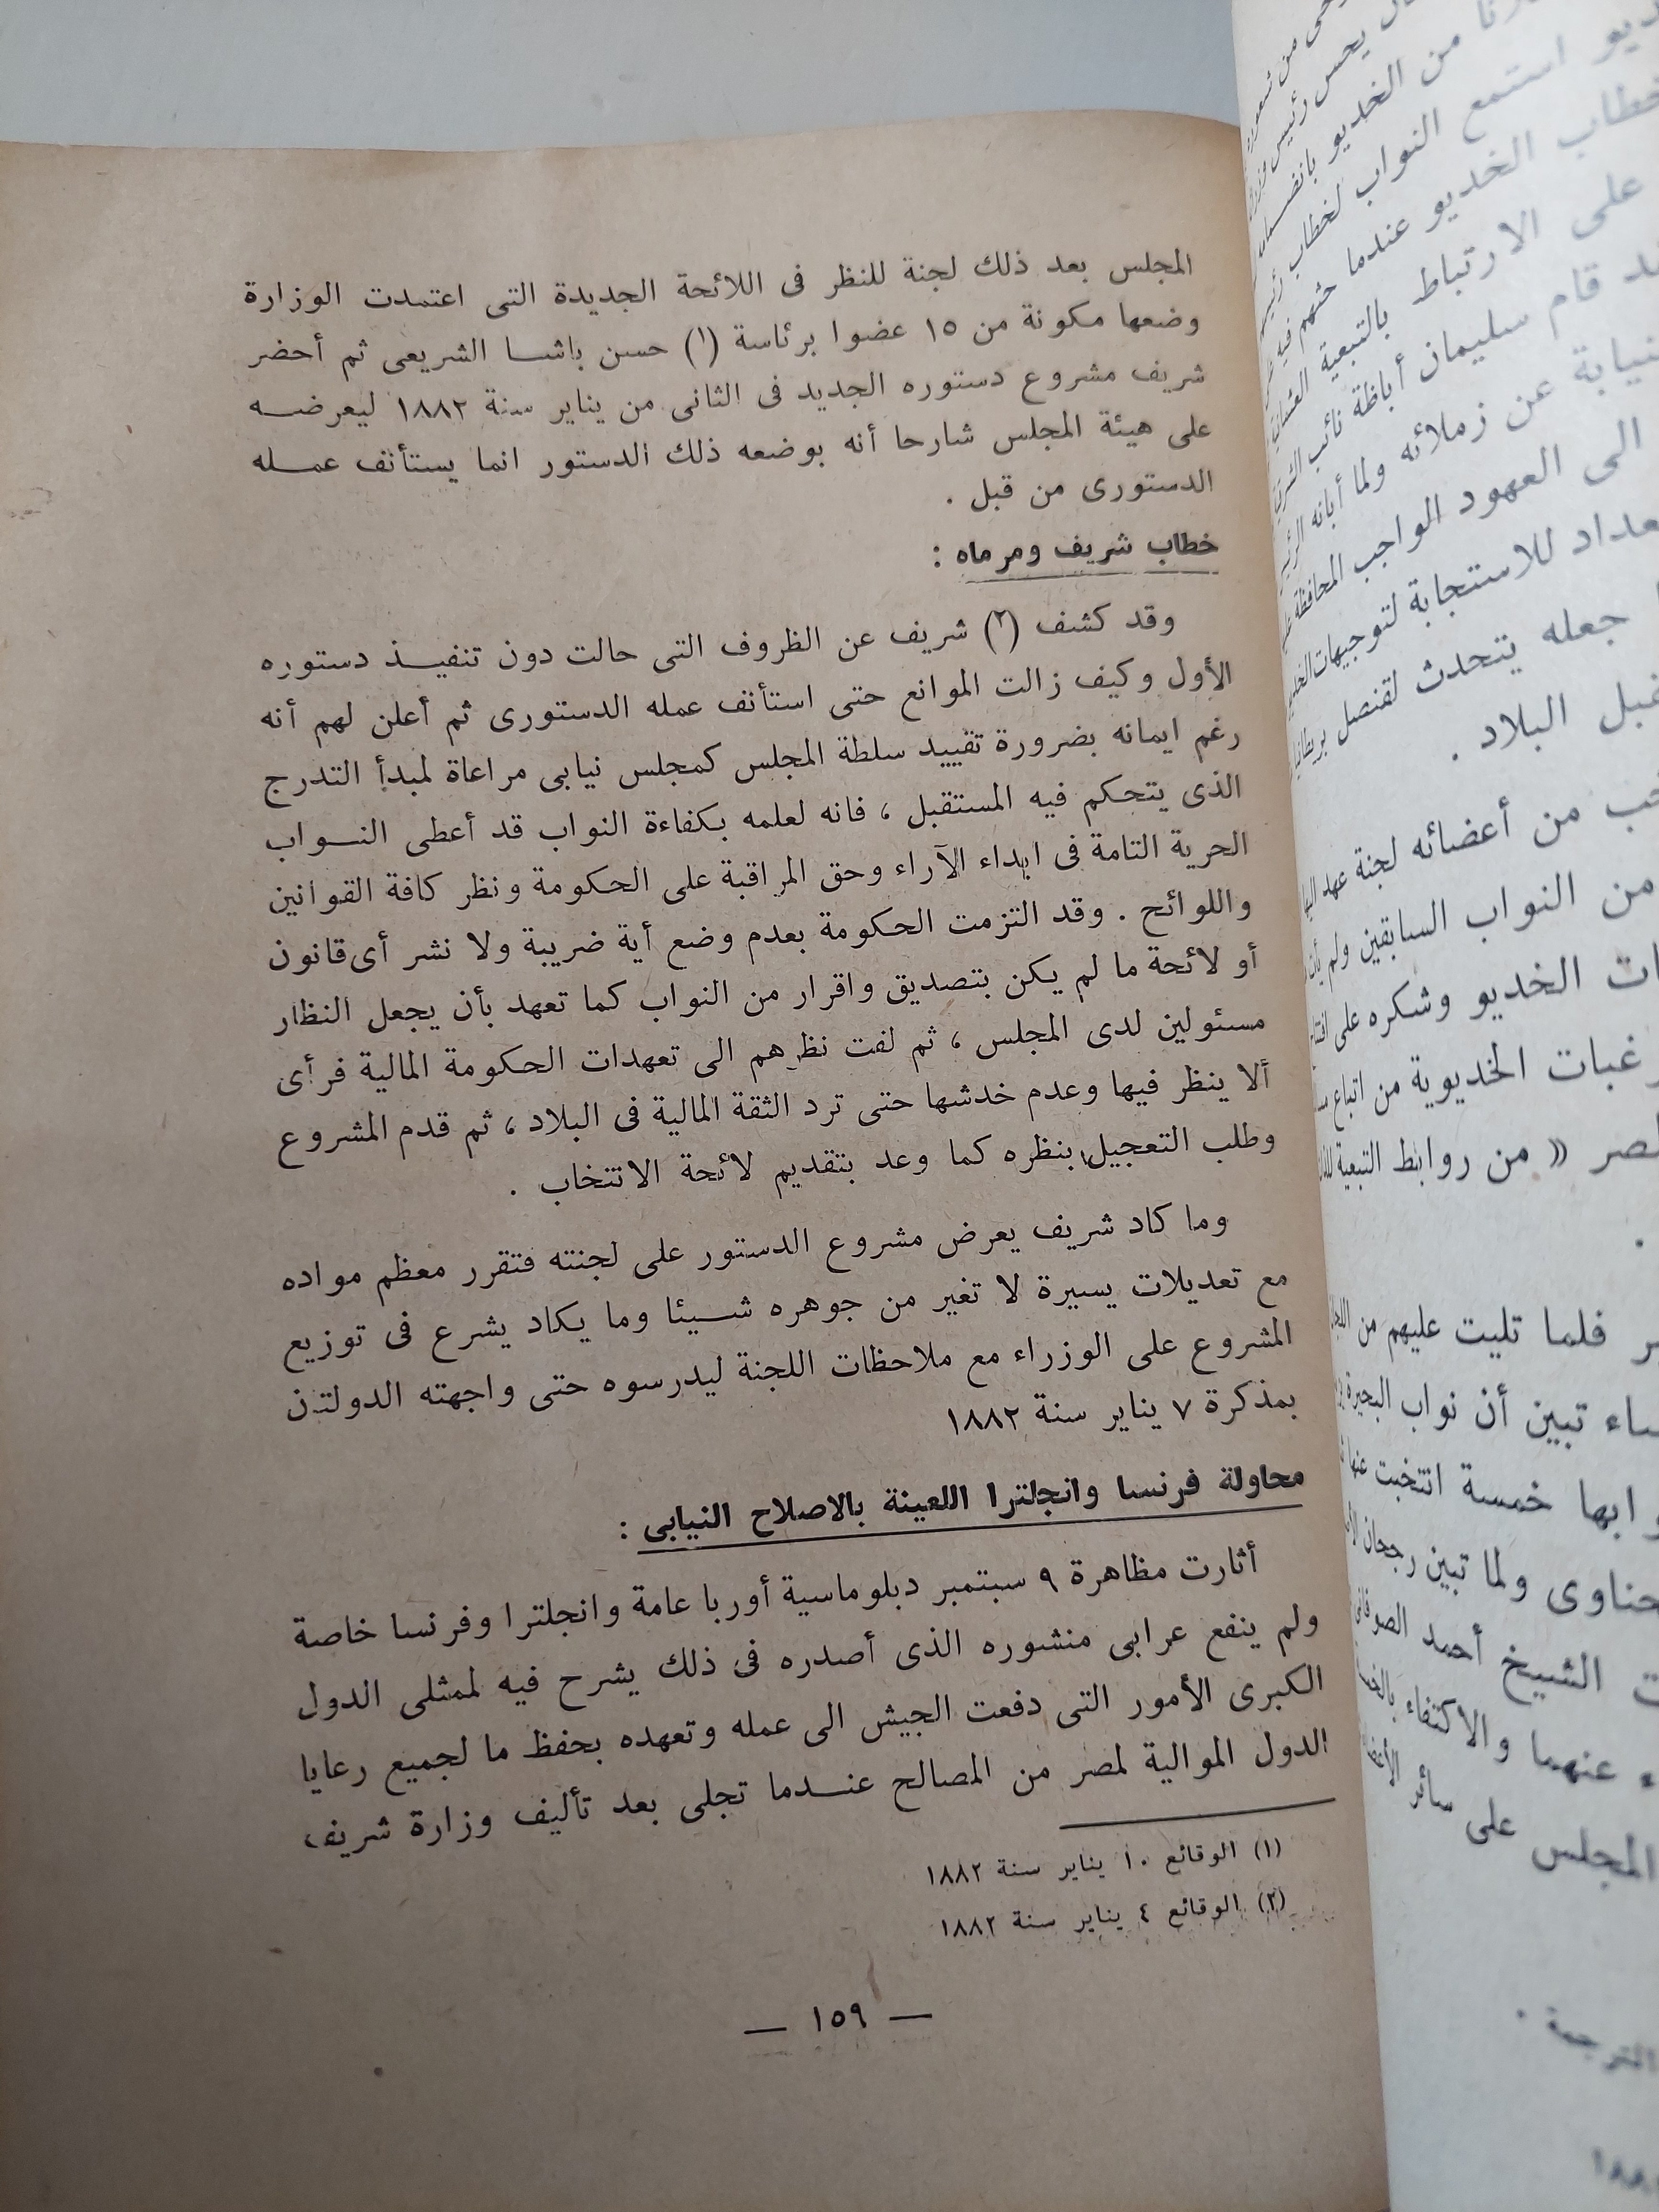 المجلس بعد ذلك لجنة للنظر فى اللائحة الجديدة التى اعتمدت الوزارة
وضعها مكونة من ١٥ عضوا برئاسة (١) حسن باشا الشريعى ثم أحضر
شريف مشروع دستوره الجديد فى الثانى من يناير سنة ١٨٨٢ ليعرضه
على هيئة المجلس شارحا أنه بوضعه ذلك الدستور انما يستأنف عمله
الدستورى من قبل .
خطاب شريف ومرماه :
وقد كشف (٢) شريف عن الظروف التى حالت دون تنفيذ دستوره
الأول وكيف زالت الموانع حتى استأنف عمله الدستورى ثم أعلن لهم أنه
رغم ايمانه بضرورة تقييد سلطة المجلس كمجلس نيابى مراعاة لمبدأ التدرج
الذى يتحكم فيه المستقبل ، فانه لعلمه بكفاءة النواب قد أعطى النواب
الحرية التامة فى ابداء الآراء وحق المراقبة على الحكومة ونظر كافة القوانين
واللوائح . وقد التزمت الحكومة بعدم وضع أية ضريبة ولا نشر أى قانون
أو لائحة ما لم يكن بتصديق واقرار من النواب كما تعهد بأن يجعل النظار
مسئولين لدى المجلس ، ثم لفت نظرهم الى تعهدات الحكومة المالية فرأى
ألا ينظر فيها وعدم خدشها حتى ترد الثقة المالية فى البلاد ، ثم قدم المشروع
وطلب التعجيل بنظره كما وعد بتقديم لائحة الانتخاب .
وما كاد شريف يعرض مشروع الدستور على لجنته فتقرر معظم مواده
مع تعديلات يسيرة لا تغير من جوهره شيئا وما يكاد يشرع فى توزيع
المشروع على الوزراء مع ملاحظات اللجنة ليدرسوه حتى واجهته الدولتن
بمذكرة ٧ يناير سنة ١٨٨٢
محاولة فرنسا وانجلترا اللعينة بالاصلاح النيابى :
أثارت مظاهرة ٩ سبتمبر دبلوماسية أوربا عامة وانجلترا وفرنسا خاصة
ولم ينفع عرابى منشوره الذى أصدره فى ذلك يشرح فيه لممثلى الدول
الكبرى الأمور التى دفعت الجيش الى عمله وتعهده بحفظ ما لجميع رعايا
الدول الموالية لمصر من المصالح عندما تجلى بعد تأليف وزارة شريف
(١) الوقائع ١٠ يناير سنة ١٨٨٢
(٢) الوقائع ٤ يناير سنة ١٨٨٢
— ١٥٩ —
من الخديو
استمع النواب لخطاب
خطاب الخديو عندما حثهم فيه
على الارتباط بالتبعية العثمانية
قام سليمان أباظة نائب الشرقية
عن زملائه ولما أبانه
الى العهود الواجب المحافظة
للاستجابة لتوجيهات
جعله يتحدث لقنصل بريطانيا
البلاد .
من أعضائه لجنة عهد
من النواب السابقين ولم
الخديو وشكره على
رغبات الخديوية من اتباع
« من روابط التبعية
فلما تليت عليهم من
تبين أن نواب البحيرة
خمسة انتخبت عنها
ولما تبين رجحان
الشيخ أحمد
عنهما والاكتفاء
المجلس على سائر
الترجمة .